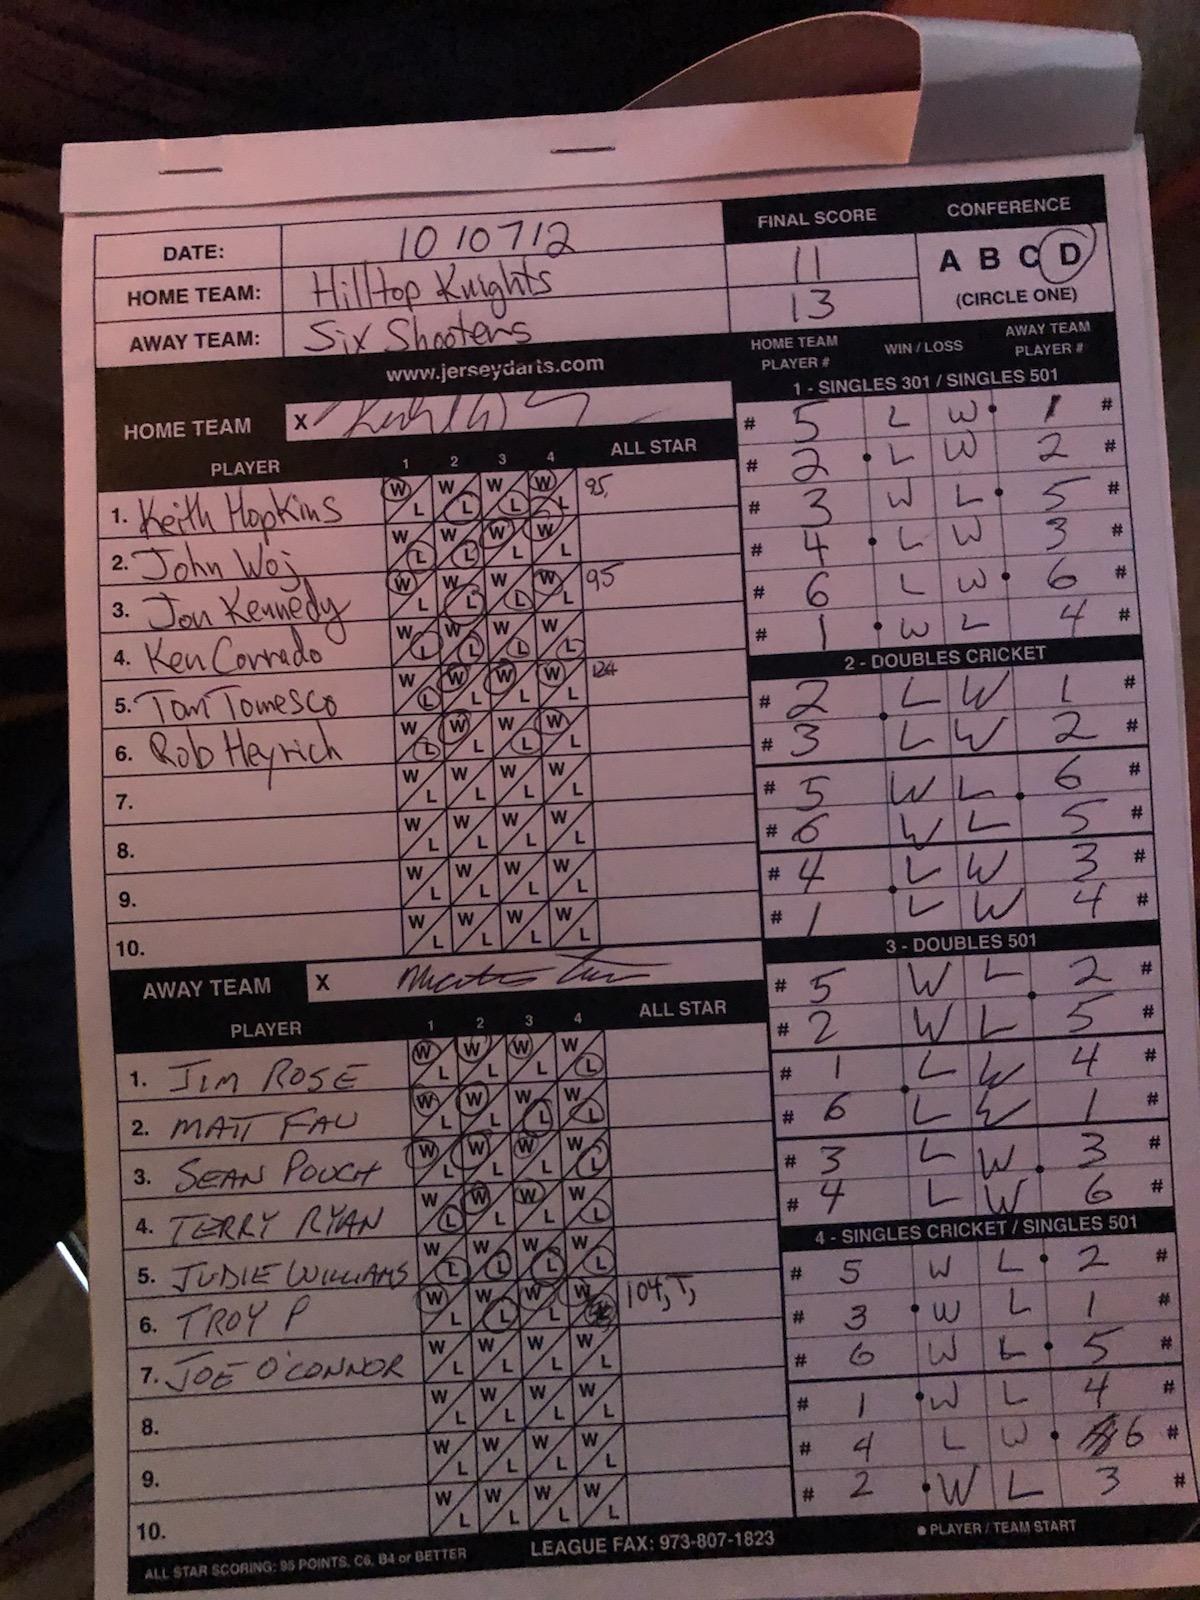 DATE: 10 10712
HOME TEAM: Hilltop Knights
AWAY TEAM: Six Shooters
FINAL SCORE
11
13
CONFERENCE
A B C D
(CIRCLE ONE)
www.jerseydarts.com
HOME TEAM X
PLAYER 1 2 3 4 ALL STAR
1. Keith Hopkins W L W L W L W L 95,
2. John Woj W L W L W L W L
3. Jon Kennedy W L W L W L W L 95
4. Ken Corrado W L W L W L W L
5. Tom Tomesco W L W L W L W L 124
6. Rob Heyrich W L W L W L W L
7. W L W L W L W L
8. W L W L W L W L
9. W L W L W L W L
10. W L W L W L W L
AWAY TEAM X
PLAYER 1 2 3 4 ALL STAR
1. JIM ROSE W L W L W L W L
2. MATT FAU W L W L W L W L
3. SEAN POUCH W L W L W L W L
4. TERRY RYAN W L W L W L W L
5. JUDIE WILLIAMS W L W L W L W L
6. TROY P W L W L W L W 104, T,
7. JOE O'CONNOR W L W L W L W L
8. W L W L W L W L
9. W L W L W L W L
10. W L W L W L W L
ALL STAR SCORING: 95 POINTS, C6, B4 or BETTER
LEAGUE FAX: 973-807-1823
HOME TEAM PLAYER # WIN / LOSS AWAY TEAM PLAYER #
1 - SINGLES 301 / SINGLES 501
# 5 L W 1 #
# 2 L W 2 #
# 3 W L 5 #
# 4 L W 3 #
# 6 L W 6 #
# 1 W L 4 #
2 - DOUBLES CRICKET
# 2 L W 1 #
# 3 L W 2 #
# 5 W L 6 #
# 6 W L 5 #
# 4 L W 3 #
# 1 L W 4 #
3 - DOUBLES 501
# 5 W L 2 #
# 2 W L 5 #
# 1 L W 4 #
# 6 L W 1 #
# 3 L W 3 #
# 4 L W 6 #
4 - SINGLES CRICKET / SINGLES 501
# 5 W L 2 #
# 3 W L 1 #
# 6 W L 5 #
# 1 W L 4 #
# 4 L W 6 #
# 2 W L 3 #
● PLAYER / TEAM START